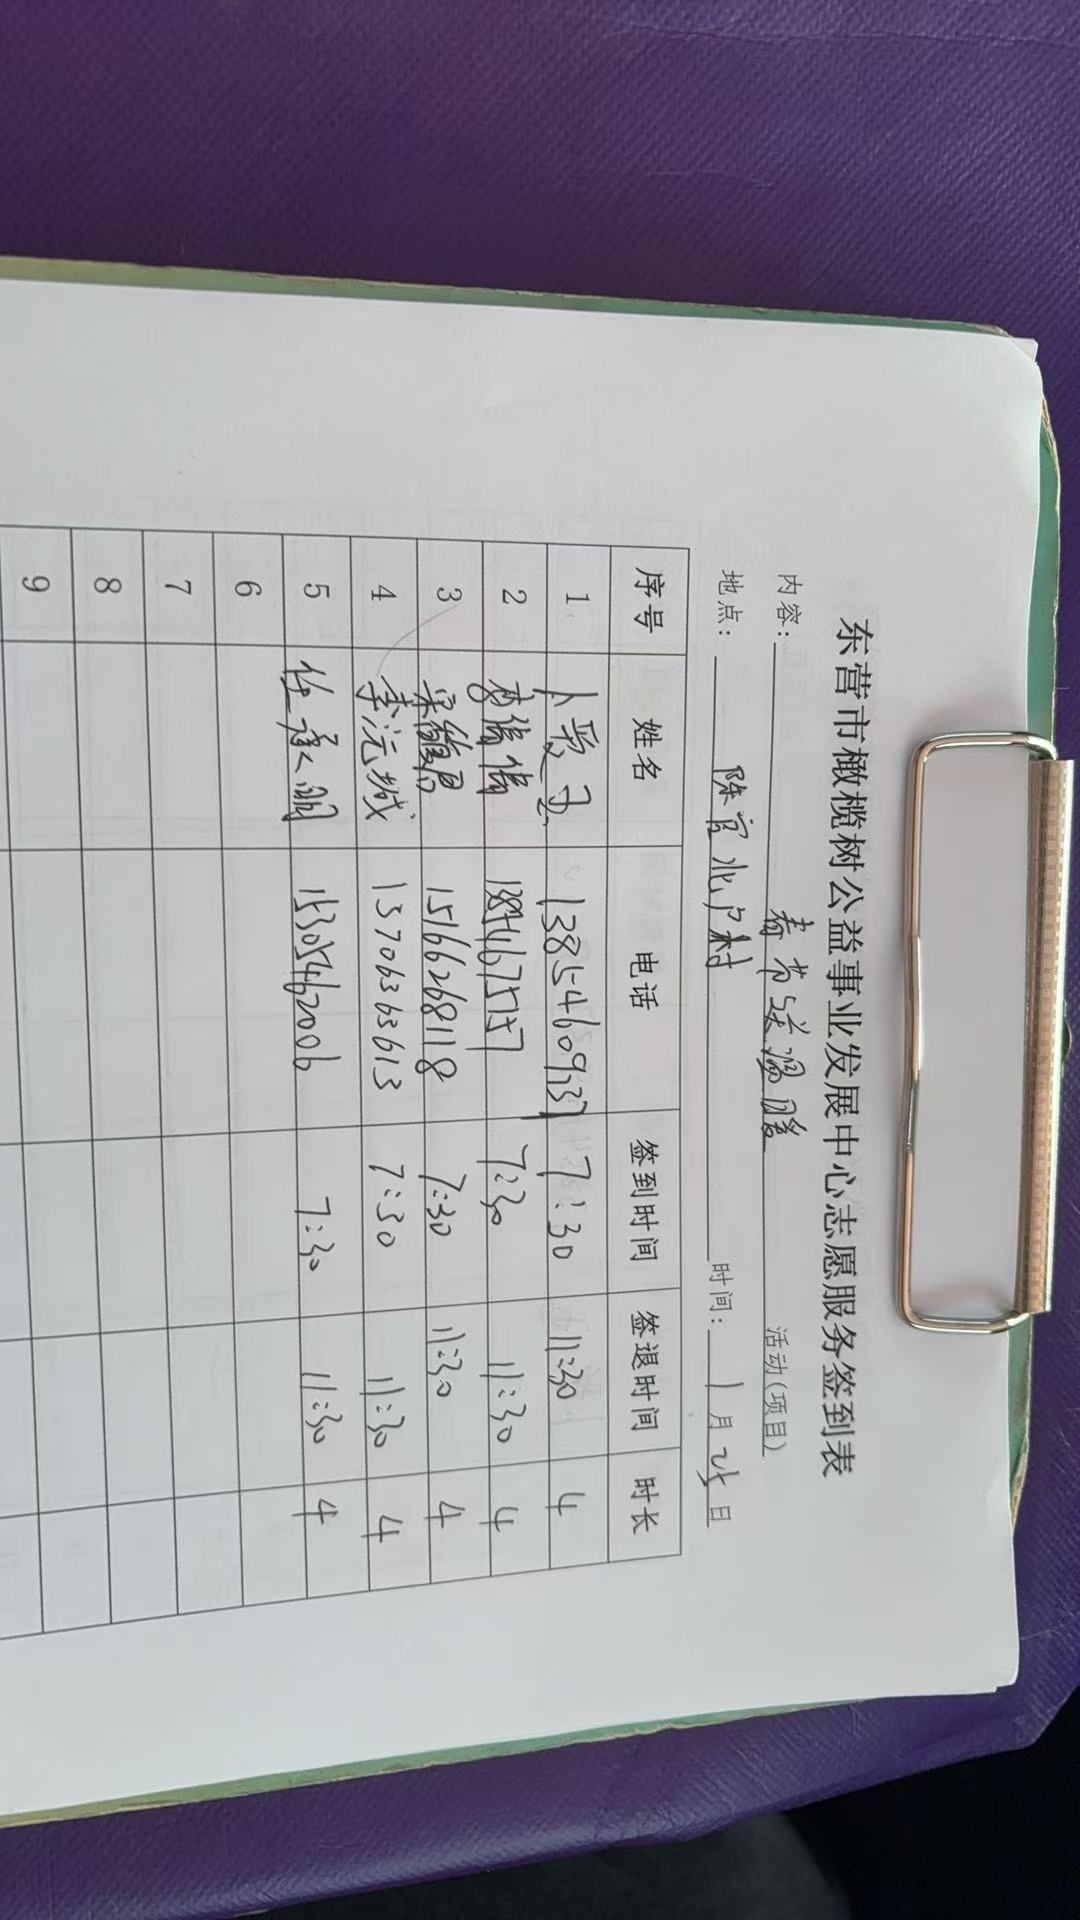 东营市橄榄树公益事业发展中心志愿服务签到表
内容： 春节送温暖 活动(项目)
地点： 陈官北卢村 时间： 1月25日
序号 姓名 电话 签到时间 签退时间 时长
1 卜爱玉 13854609137 7:30 11:30 4
2 13854675757 7:30 11:30 4
3 15166268118 7:30 11:30 4
4 李沅城 13706363613 7:30 11:30 4
5 任承润 15305462006 7:30 11:30 4
6
7
8
9